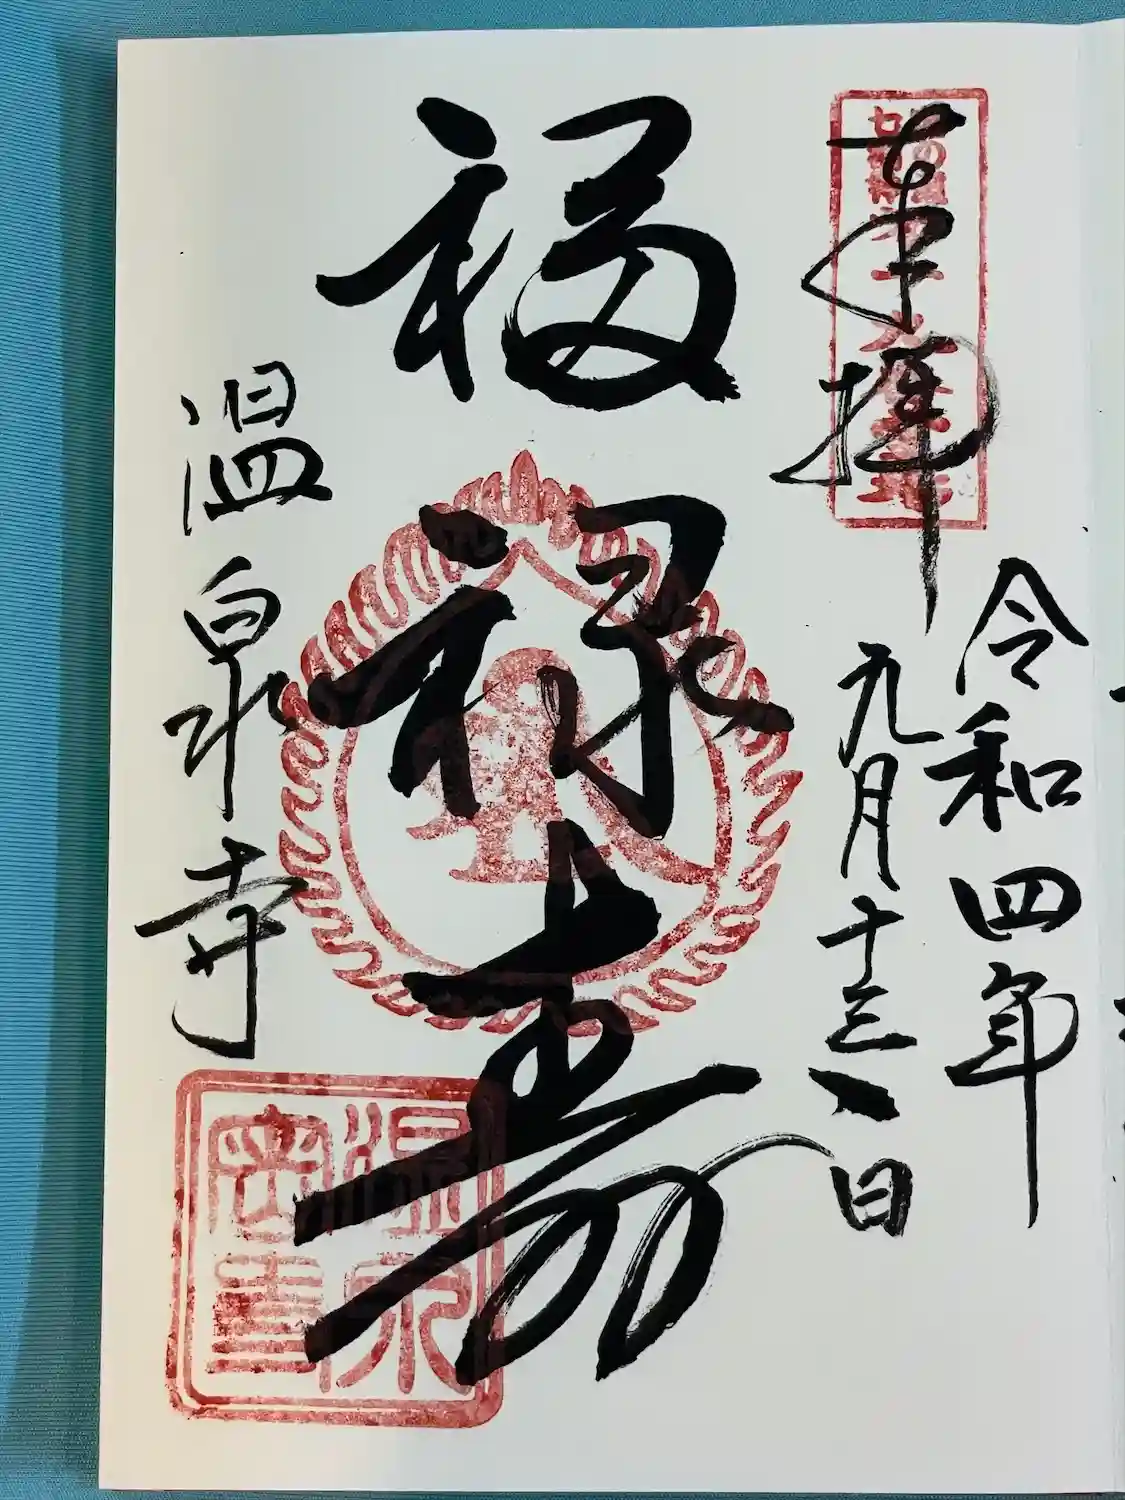 奉拝
令和四年
九月十三日
福禄壽
温泉寺